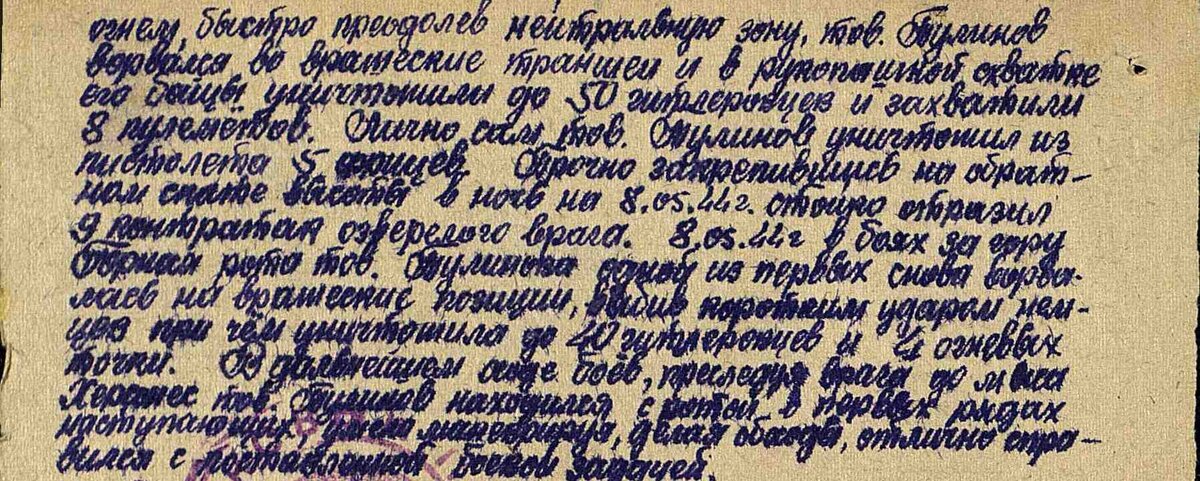 огнем, быстро преодолев нейтральную зону, тов. Тулинов
ворвался во вражеские траншеи и в рукопашной схватке
его бойцы уничтожили до 50 гитлеровцев и захватили
8 пулеметов. Лично сам тов. Тулинов уничтожил из
пистолета 5 фрицев. Прочно закрепившись на обрат-
ном скате высоты в ночь на 8.05.44г. стойко отразил
9 контратак озверелого врага. 8.05.44г в боях за гору
Горная рота тов. Тулинова одной из первых снова ворва-
лась на вражеские позиции, выбив коротким ударом нем-
цев при чём уничтожила до 40 гитлеровцев и 4 огневых
точки. В дальнейшем ходе боёв, преследуя врага до мыса
Херсонес тов. Тулинов находился с ротой в первых рядах
наступающих, умело маневрируя, делая обходы, отлично спра-
вился с поставленной боевой задачей.